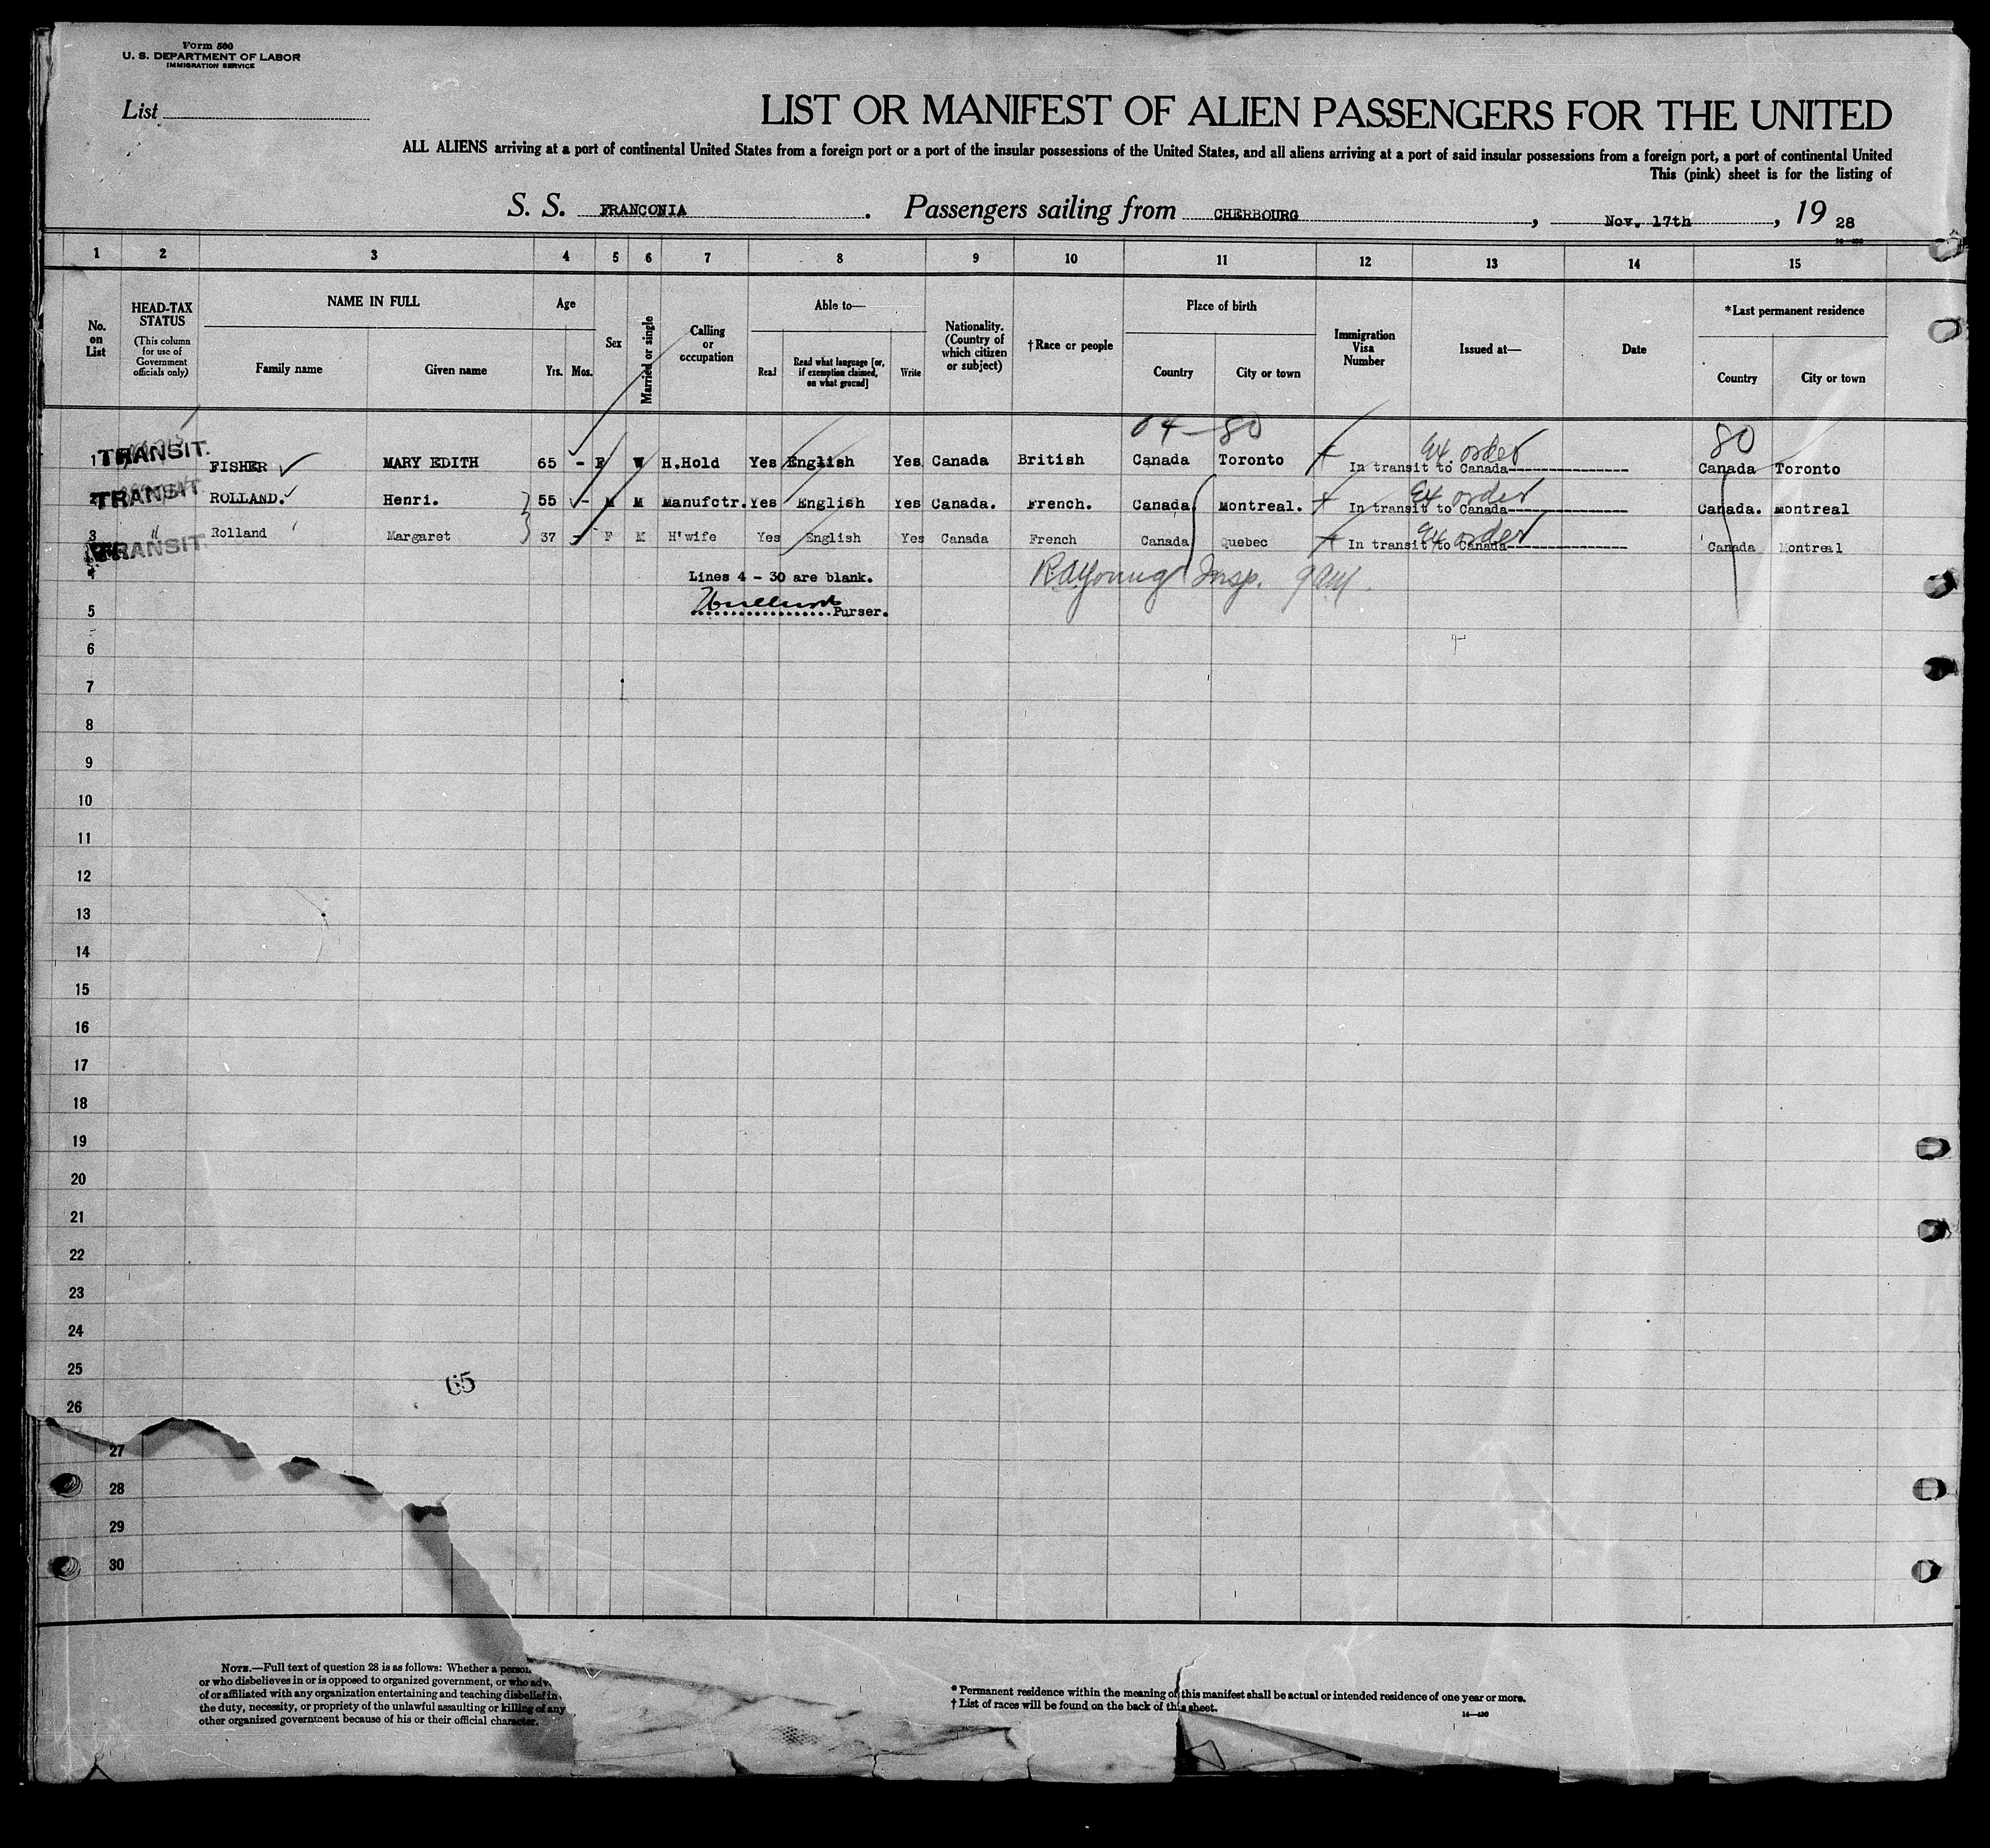 Form 500
U. S. DEPARTMENT OF LABOR
IMMIGRATION SERVICE
List
LIST OR MANIFEST OF ALIEN PASSENGERS FOR THE UNITED
ALL ALIENS arriving at a port of continental United States from a foreign port or a port of the insular possessions of the United States, and all aliens arriving at a port of said insular possessions from a foreign port, a port of continental United
This (pink) sheet is for the listing of
S. S. FRANCONIA. Passengers sailing from CHERBOURG, Nov. 17th, 19 28
1 2 3 4 5 6 7 8 9 10 11 12 13 14 15
No. on List
HEAD-TAX STATUS
(This column for use of Government officials only)
NAME IN FULL
Family name Given name
Age
Yrs. Mos.
Sex
Married or single
Calling or occupation
Able to—
Read Read what language [or, if exemption claimed, on what ground] Write
Nationality. (Country of which citizen or subject)
†Race or people
Place of birth
Country City or town
Immigration Visa Number
Issued at—
Date
*Last permanent residence
Country City or town
04-80 80
1 TRANSIT. FISHER MARY EDITH 65 - F W H.Hold Yes English Yes Canada British Canada Toronto In transit to Canada Ex order Canada Toronto
2 TRANSIT ROLLAND. Henri. 55 - M M Manufctr. Yes English Yes Canada. French. Canada Montreal. In transit to Canada Ex order Canada. montreal
3 TRANSIT. " Rolland Margaret 37 - F M H'wife Yes English Yes Canada French Canada Quebec In transit to Canada Ex order Canada Montreal
4 Lines 4 - 30 are blank. Insp.
5 Purser.
6
7
8
9
10
11
12
13
14
15
16
17
18
19
20
21
22
23
24
25
65
26
27
28
29
30
NOTE.—Full text of question 28 is as follows: Whether a person
or who disbelieves in or is opposed to organized government, or who adv
of or affiliated with any organization entertaining and teaching disbelief in
the duty, necessity, or propriety of the unlawful assaulting or killing of any
other organized government because of his or their official character.
* Permanent residence within the meaning of this manifest shall be actual or intended residence of one year or more.
† List of races will be found on the back of this sheet.
14—430